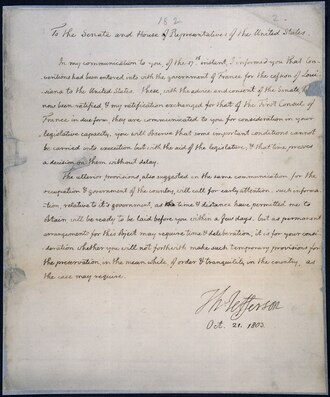 To the Senate and House of Representatives of the United States.
In my communication to you of the 17th instant, I informed you that Con-
ventions had been entered into with the government of France for the cession of Loui-
siana to the United States. These, with the advice and consent of the Senate having
now been ratified, & my ratification exchanged for that of the First Consul of
France in due form, they are communicated to you for consideration in your
legislative capacity. you will observe that some important conditions cannot
be carried into execution but with the aid of the legislature, & that time presses
a decision on them without delay.
The ulterior provisions, also suggested in the same communication, for the
occupation & government of the country, will call for early attention. such inform-
ation, relative to it's government, as time & distance have permitted me to
obtain, will be ready to be laid before you within a few days. but as permanent
arrangements for this object may require time & deliberation, it is for your consi-
deration whether you will not forthwith make such temporary provisions for
the preservation, in the mean while, of order & tranquility in the country, as
the case may require.
Th: Jefferson
Oct. 21. 1803.